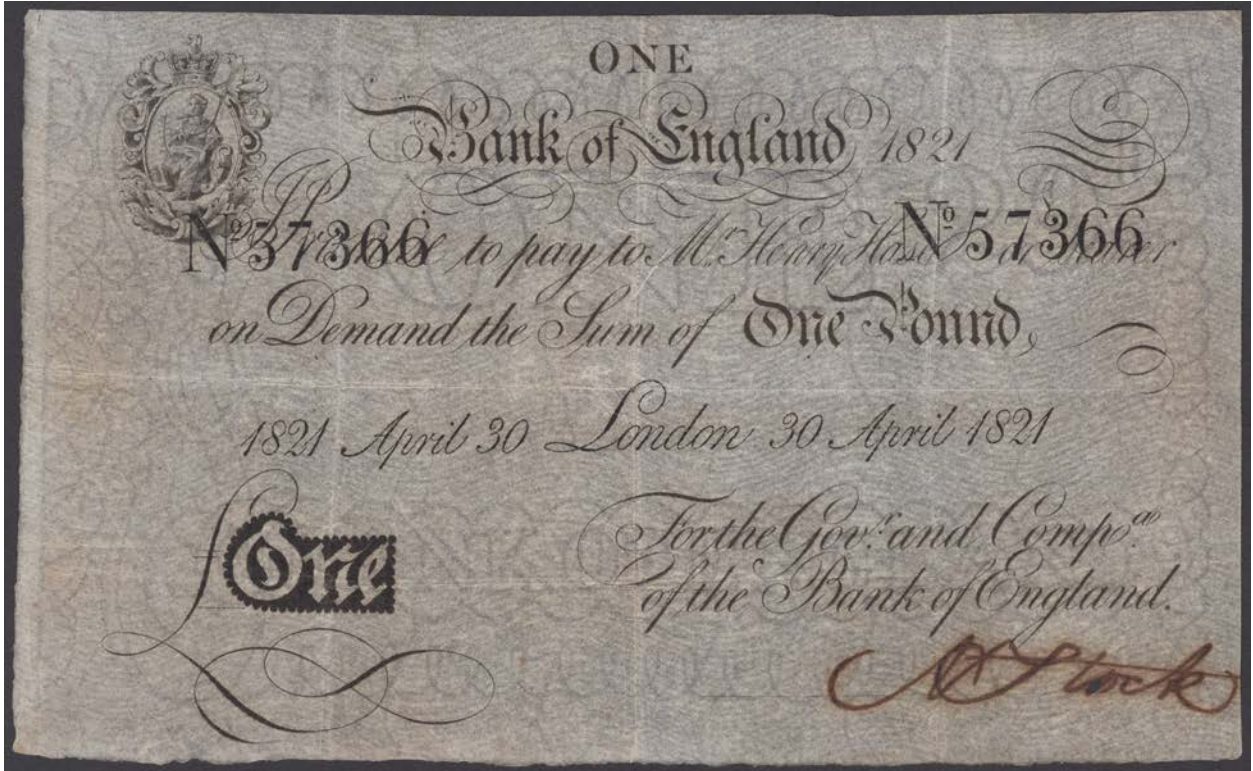 ONE
Bank of England 1821
I Promise to pay to Mr. Henry Hase or Bearer
No 57366 No 57366
on Demand the Sum of One Pound,
1821 April 30 London 30 April 1821
£ One
For the Govr. and Compa.
of the Bank of England.
Stock